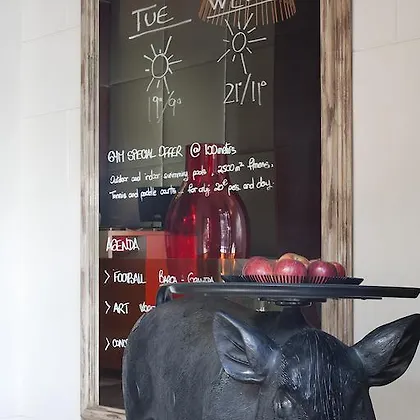 TUE WE
19°/9° 21°/11°
GYM SPECIAL OFFER @ 100 meters
Outdoor and indoor swimming pools, 2500 m² fitness,
Tennis and paddle courts - for only 20€ pers. and day.
AGENDA
> FOOTBALL BARÇA - GRANADA
> ART
>